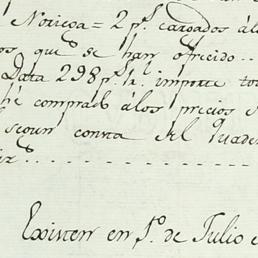 Noticia = 2 p.s cargados álo
os que se han ofrecido..
Data 298 p.s 1/2 importe to
hé comprado álos precios
segun consta del Quade

Existen en 1.o de Julio